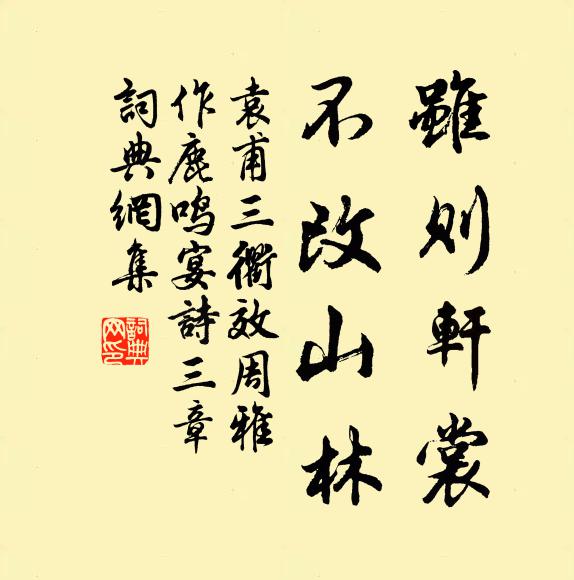 雖則軒裳
不改山林
袁甫三衢效周雅
作鹿鳴宴詩三章
詞典網集
詞典網印